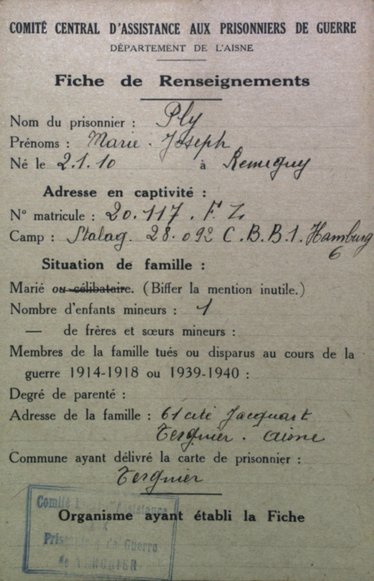 COMITÉ CENTRAL D'ASSISTANCE AUX PRISONNIERS DE GUERRE
DÉPARTEMENT DE L'AISNE
Fiche de Renseignements
Nom du prisonnier : Ply
Prénoms : Marie-Joseph
Né le 2.1.10 à Remeguy
Adresse en captivité :
N° matricule : 20.117. F. Z
Camp : Stalag. 28.092 C.B.B.1. Hamburg
6
Situation de famille :
Marié ou célibataire. (Biffer la mention inutile.)
Nombre d'enfants mineurs : 1
— de frères et sœurs mineurs :
Membres de la famille tués ou disparus au cours de la
guerre 1914-1918 ou 1939-1940 :
Degré de parenté :
Adresse de la famille : 61 cité Jacquart
Tergnier. Aisne
Commune ayant délivré la carte de prisonnier :
Tergnier
Organisme ayant établi la Fiche
Comité
Prisonniers de Guerre
de TERGNIER